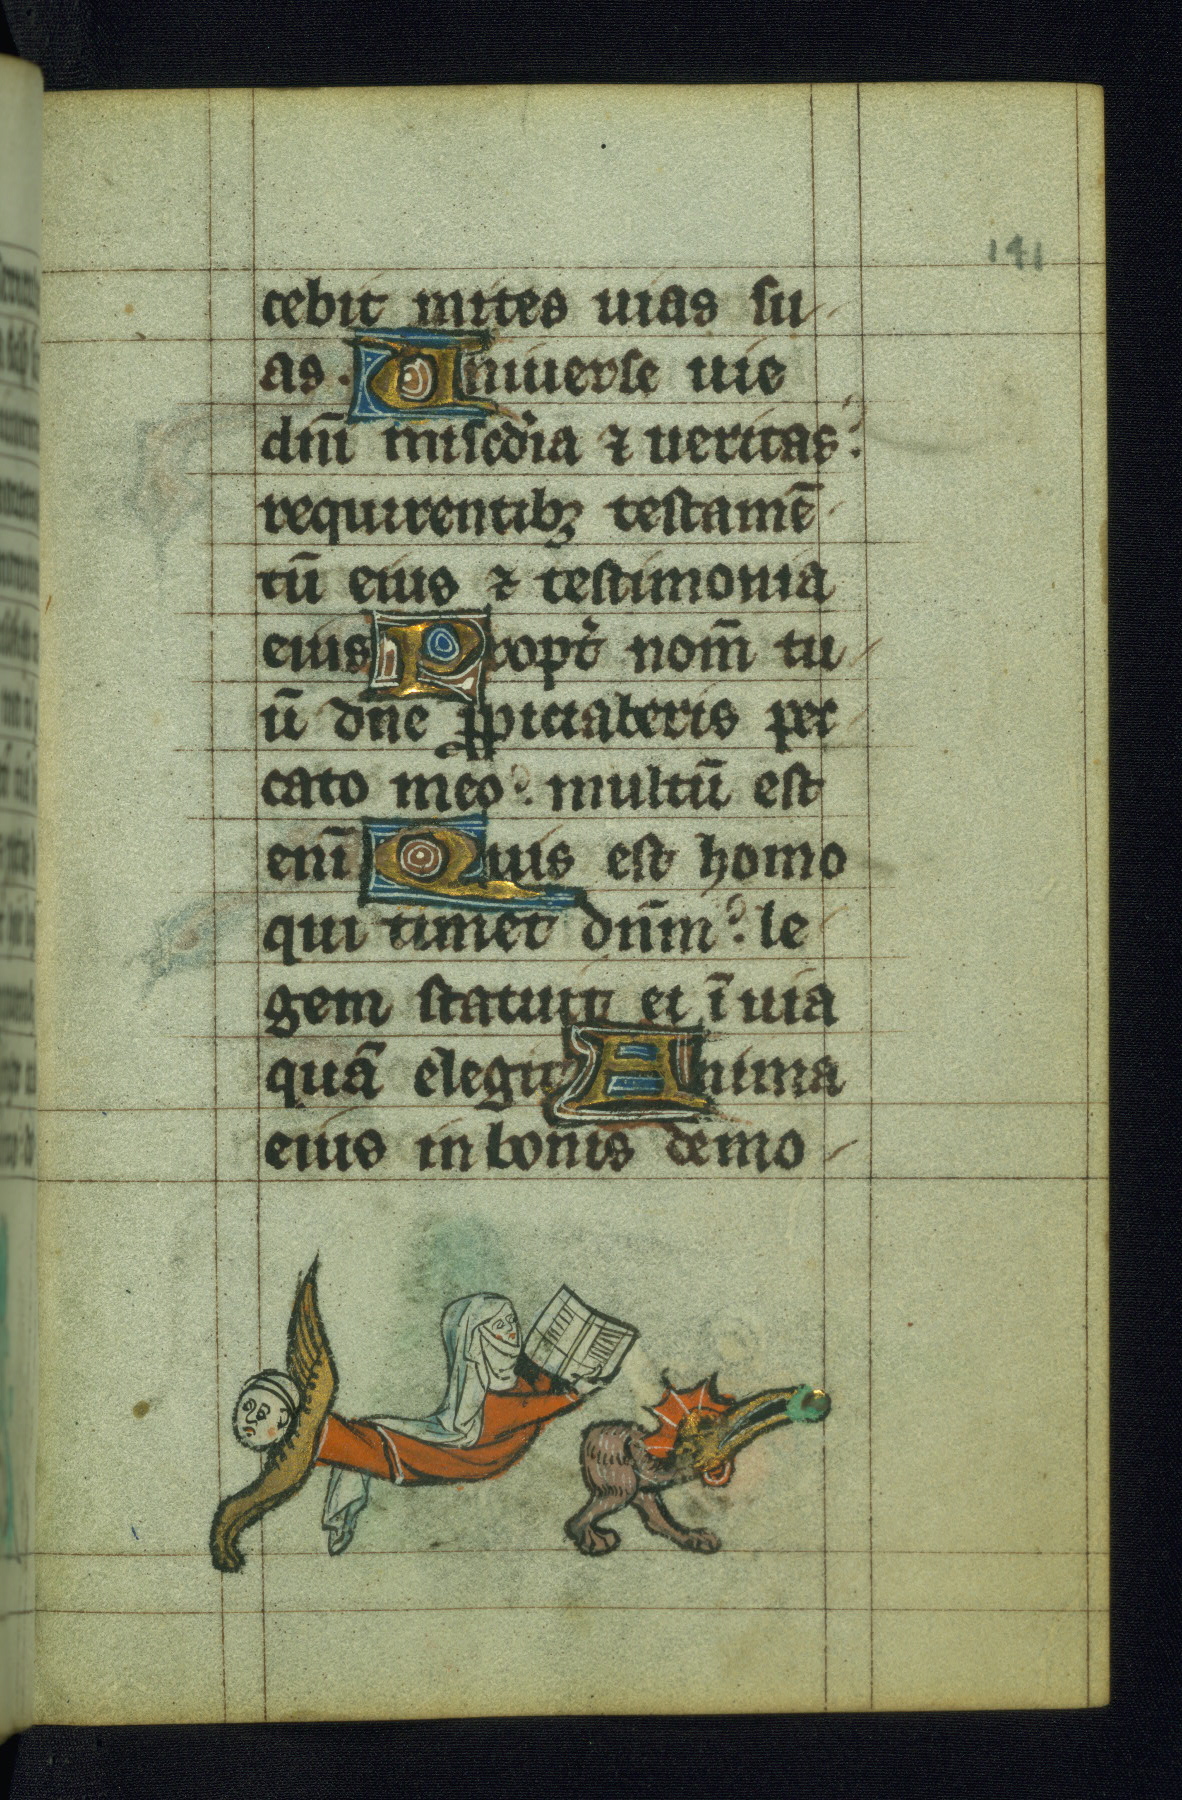 141
cebit mites uias su
as. Uniuerse uie
dñi misc̄dia ⁊ ueritas:
requirentibꝫ testamē
tū eius ⁊ testimonia
eius Propt̄ nom̄ tu
ū dñe ꝓpiciaberis pec
cato meo: multū est
enī Quis est homo
qui timet dn̄m: le
gem statuit ei ī uia
quā elegit Anima
eius in bonis demo